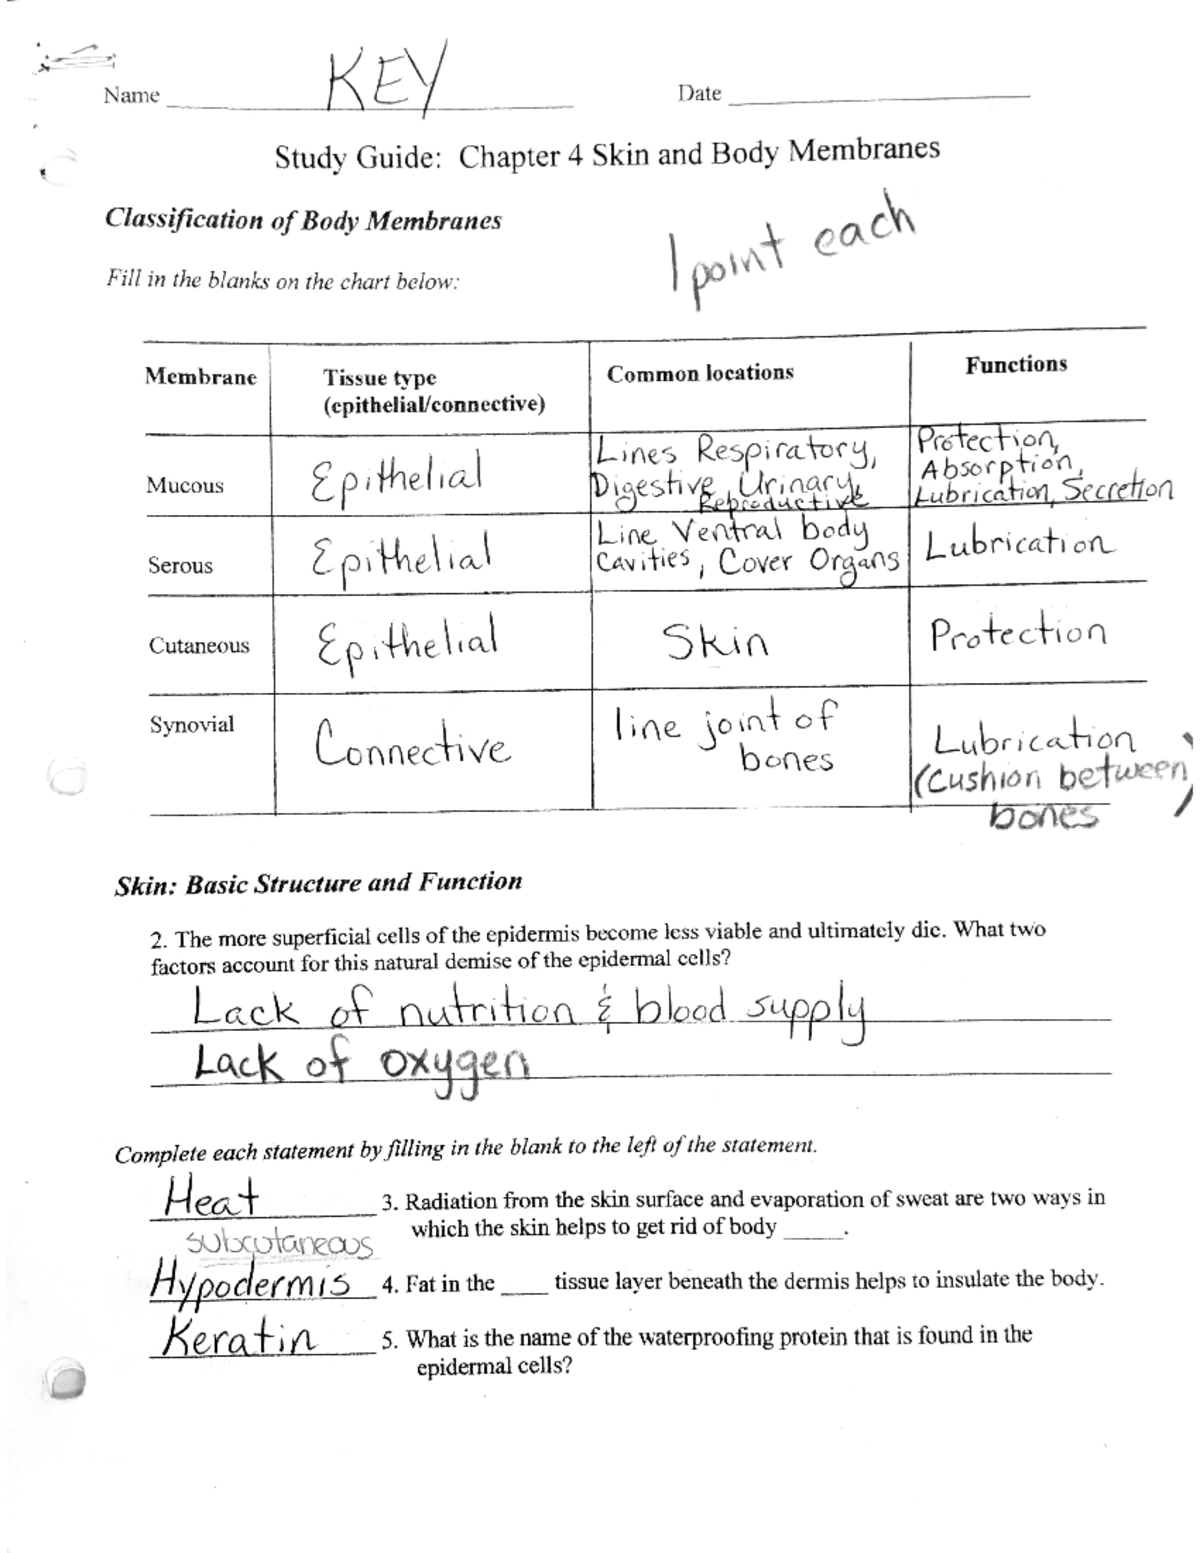 Name KEY Date
Study Guide: Chapter 4 Skin and Body Membranes
Classification of Body Membranes
1 point each
Fill in the blanks on the chart below:
Membrane Tissue type (epithelial/connective) Common locations Functions
Mucous Epithelial Lines Respiratory, Digestive, Urinary, Reproductive Protection, Absorption, Lubrication, Secretion
Serous Epithelial Line Ventral body Cavities, Cover Organs Lubrication
Cutaneous Epithelial Skin Protection
Synovial Connective line joint of bones Lubrication (Cushion between bones)
Skin: Basic Structure and Function
2. The more superficial cells of the epidermis become less viable and ultimately die. What two
factors account for this natural demise of the epidermal cells?
Lack of nutrition & blood supply
Lack of oxygen
Complete each statement by filling in the blank to the left of the statement.
Heat 3. Radiation from the skin surface and evaporation of sweat are two ways in
which the skin helps to get rid of body _____.
subcutaneous
Hypodermis 4. Fat in the ____ tissue layer beneath the dermis helps to insulate the body.
Keratin 5. What is the name of the waterproofing protein that is found in the
epidermal cells?